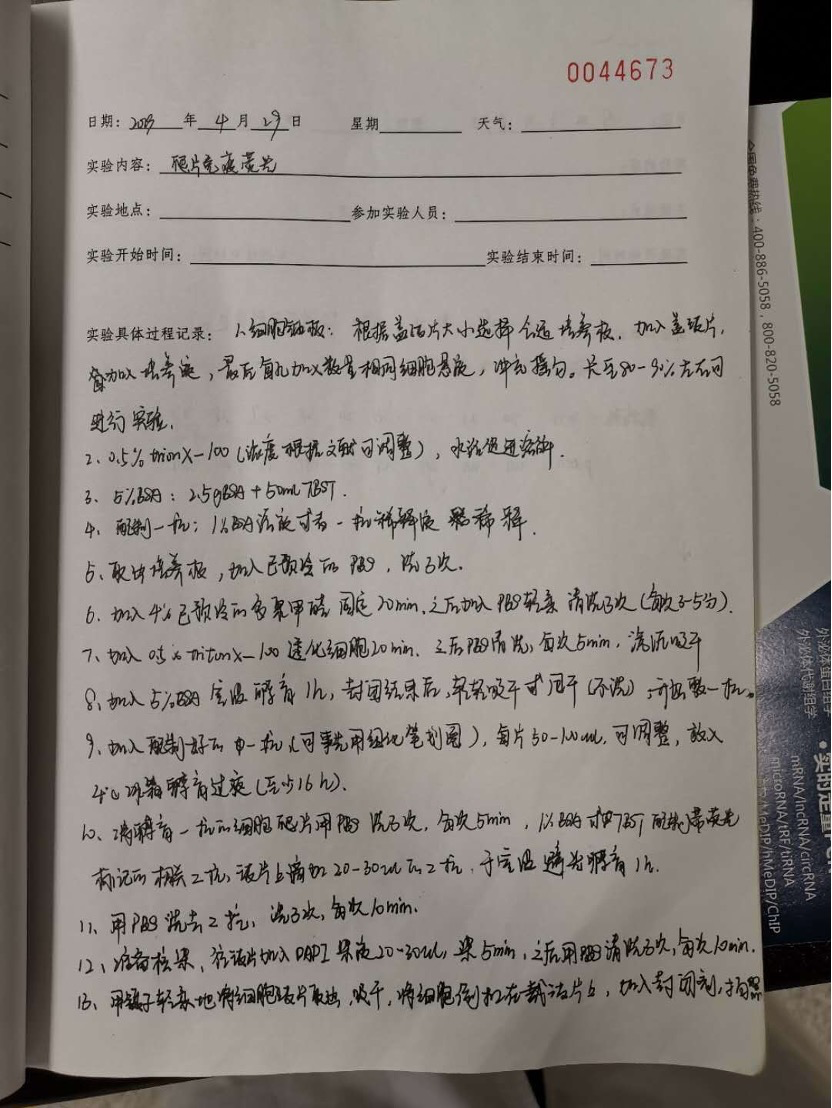 0044673
日期: 年 4 月 29 日 星期 天气:
实验内容: 爬片免疫荧光
实验地点: 参加实验人员:
实验开始时间: 实验结束时间:
实验具体过程记录: 1、细胞铺板: 根据盖玻片大小选择合适培养板, 加入盖玻片,
加入培养液, 最后每孔加入数量相同细胞悬液, 摇匀。长至80-90%左右可
进行实验.
2、0.5% trionX-100 (浓度根据文献可调整), 水浴促进溶解.
3、5%BSA: 2.5gBSA+50ml TBST.
4、配制一抗: 1%BSA溶液或者一抗稀释液 稀释.
5、取出培养板, 加入已预冷的PBS, 洗3次.
6、加入4%已预冷的多聚甲醛固定20min, 之后加入PBS轻柔清洗3次(每次3-5分).
7、加入0.5% tritonx-100 透化细胞20min, 之后PBS清洗, 每次5min, 吸干
8、加入5%BSA室温孵育1h, 封闭结束后, 轻轻吸干或甩干(不洗), 一抗。
9、加入配制好的一抗(可事先用组化笔划圈), 每片50-100ul, 可调整, 放入
4℃冰箱孵育过夜(至少16h).
10、将孵育一抗的细胞爬片用PBS洗3次, 每次5min, 1%BSA或TBST配制带荧光
标记的相关2抗, 玻片上滴加20-30ul的2抗, 于室温避光孵育1h.
11、用PBS洗去2抗, 洗3次, 每次10min.
12、准备核染, 往玻片加入DAPI染液20-30ul, 染5min, 之后用PBS清洗3次, 每次10min.
13、用镊子轻柔地将细胞玻片取出, 吸干, 将细胞倒扣在载玻片上, 加入封闭剂, 拍照
全国免费热线: 400-886-5058, 800-820-5058
外泌体蛋白组学
外泌体代谢组学
• 实时定量
mRNA/lncRNA/circRNA
microRNA/tRF/tiRNA
MeDIP/hMeDIP/ChIP